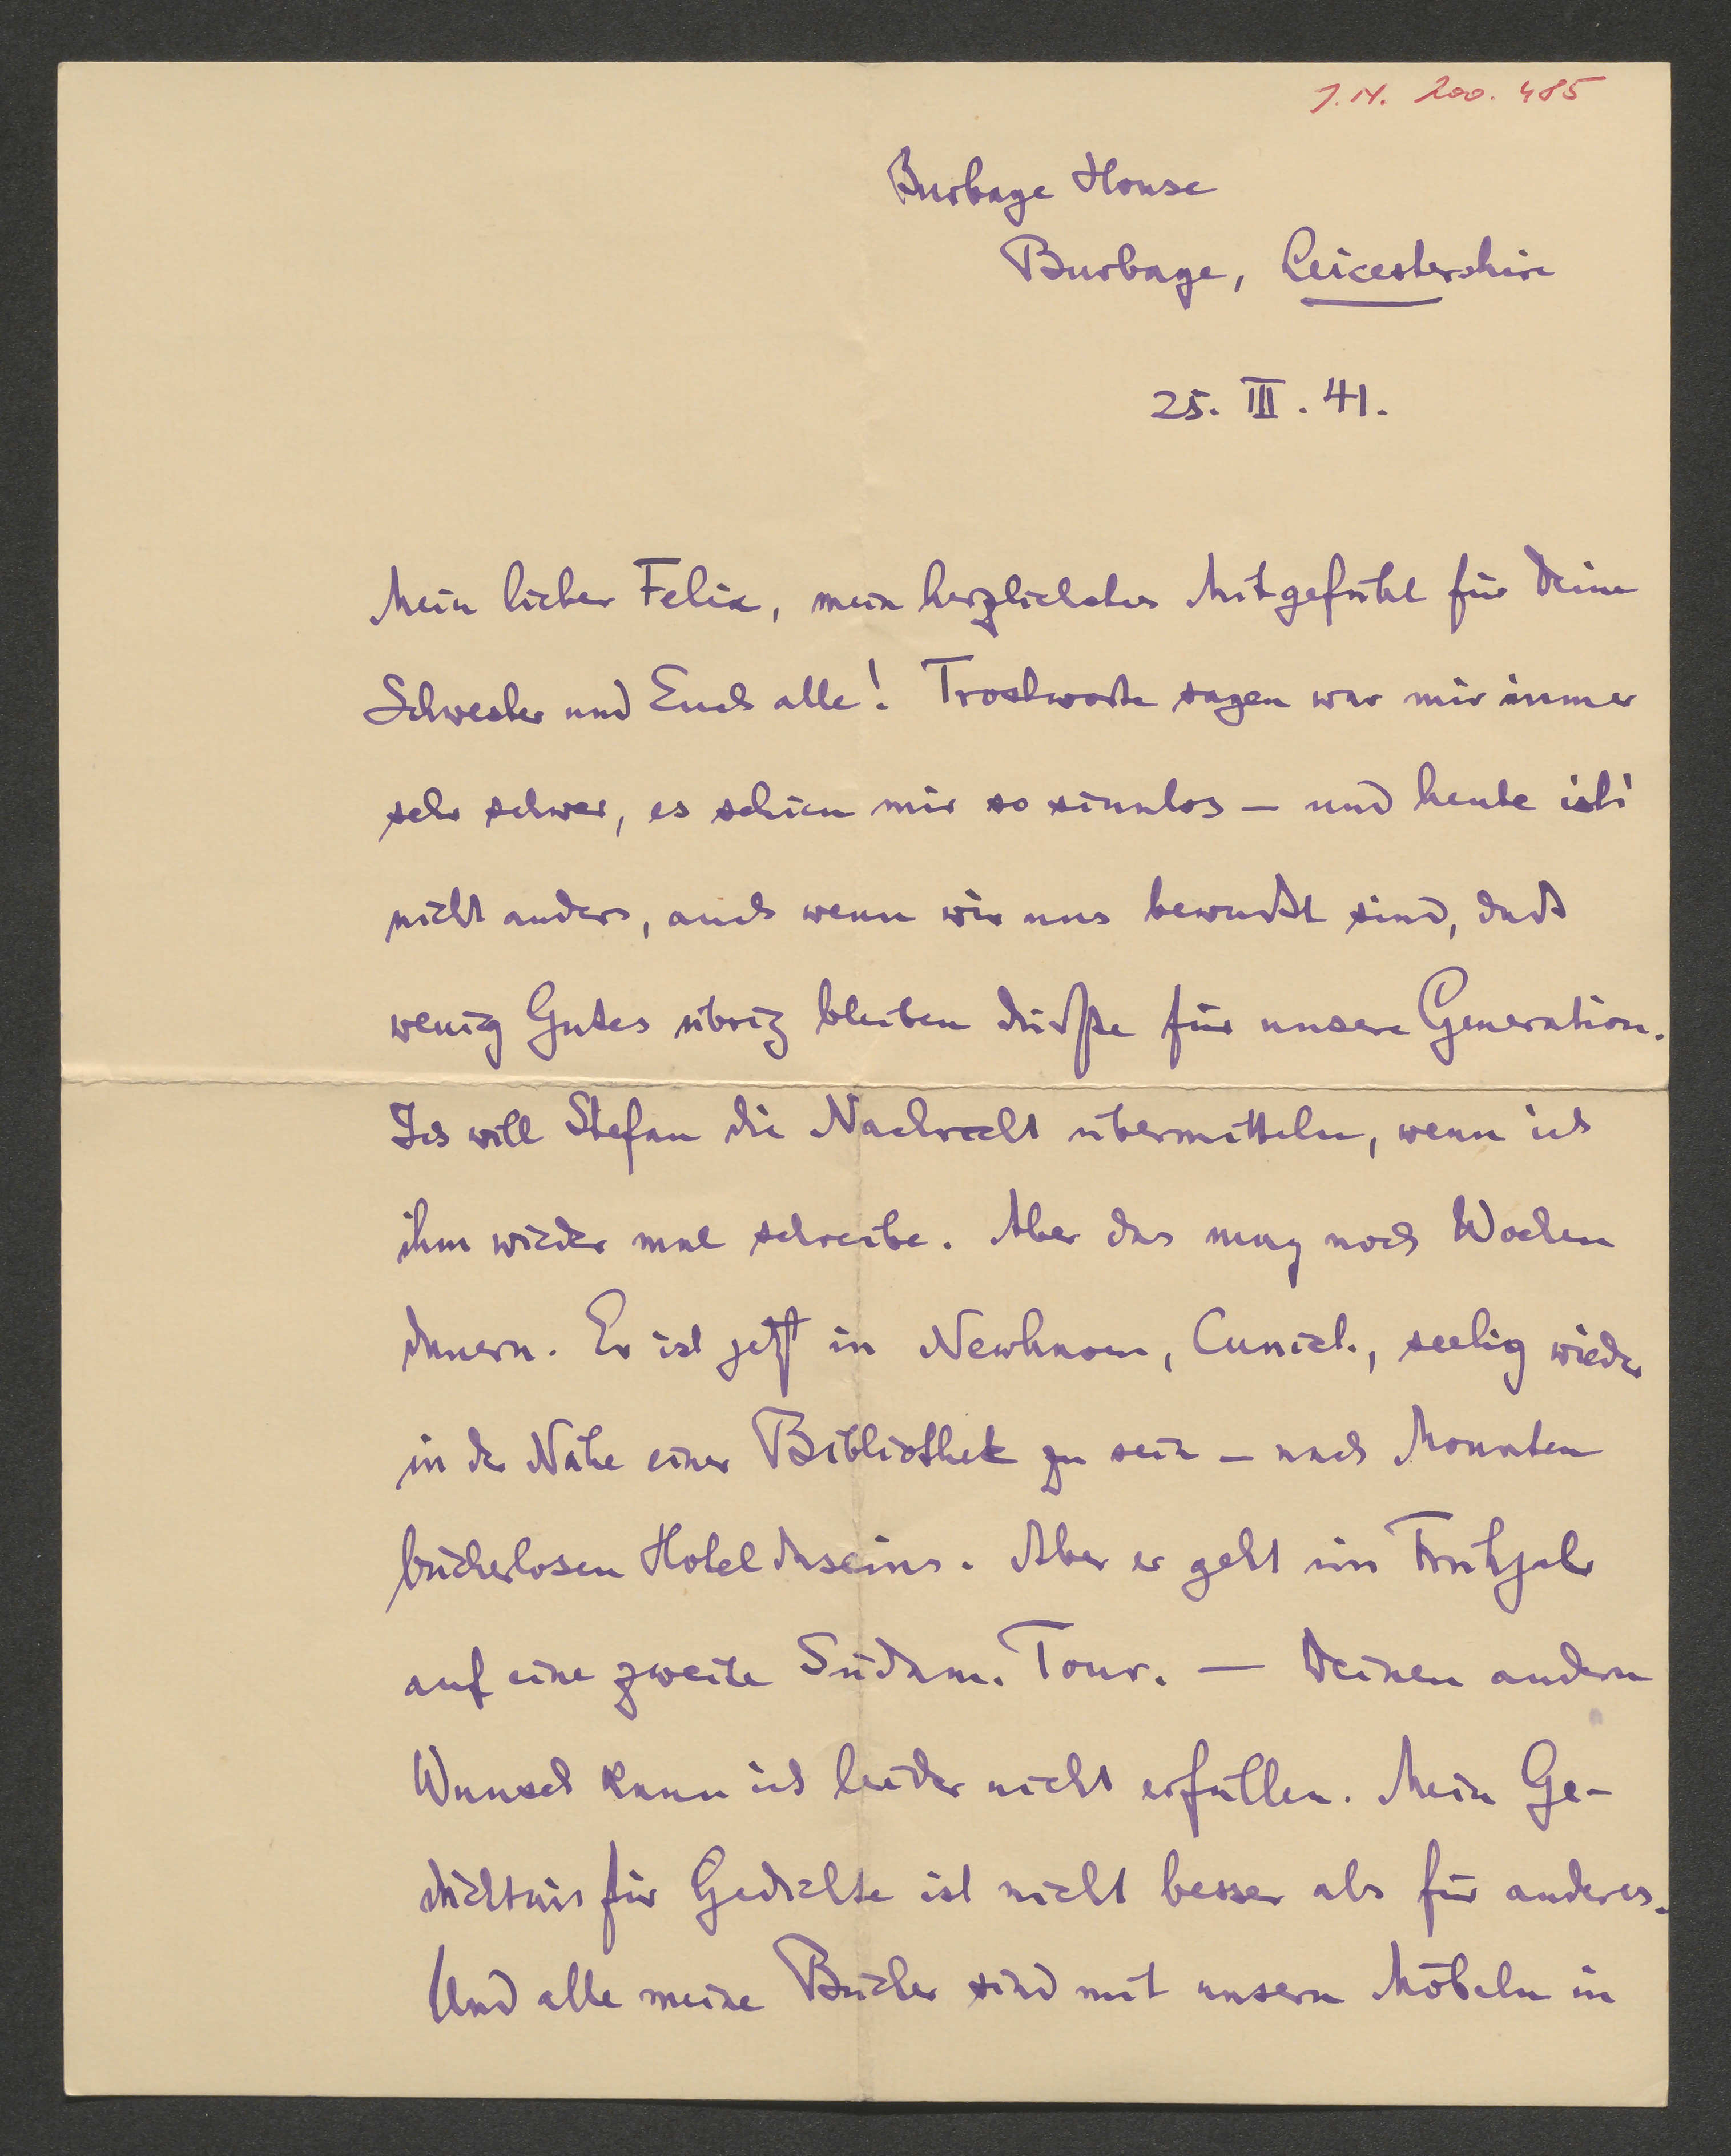 I.N. 200.485
Burbage House
Burbage, Leicestershire
25. III. 41.
Mein lieber Felix, mein herzlichstes Mitgefühl für Deine
Schwester und Euch alle! Trostworte sagen war mir immer
sehr schwer, es schien mir so sinnlos – und heute ists
nicht anders, auch wenn wir uns bewußt sind, daß
wenig Gutes übrig bleiben dürfte für unsere Generation.
Ich will Stefan die Nachricht übermitteln, wenn ich
ihm wieder mal schreibe. Aber das mag noch Wochen
dauern. Er ist jetzt in Newhaven, seelig wieder
in der Nähe einer Bibliothek zu sein – nach Monaten
bücherlosen Hoteldaseins. Aber er geht im Frühjahr
auf eine zweite Südam. Tour. — Deinen andern
Wunsch kann ich leider nicht erfüllen. Mein Ge-
dächtnis für Gedichte ist nicht besser als für anderes.
Und alle meine Bücher sind mit unsern Möbeln in